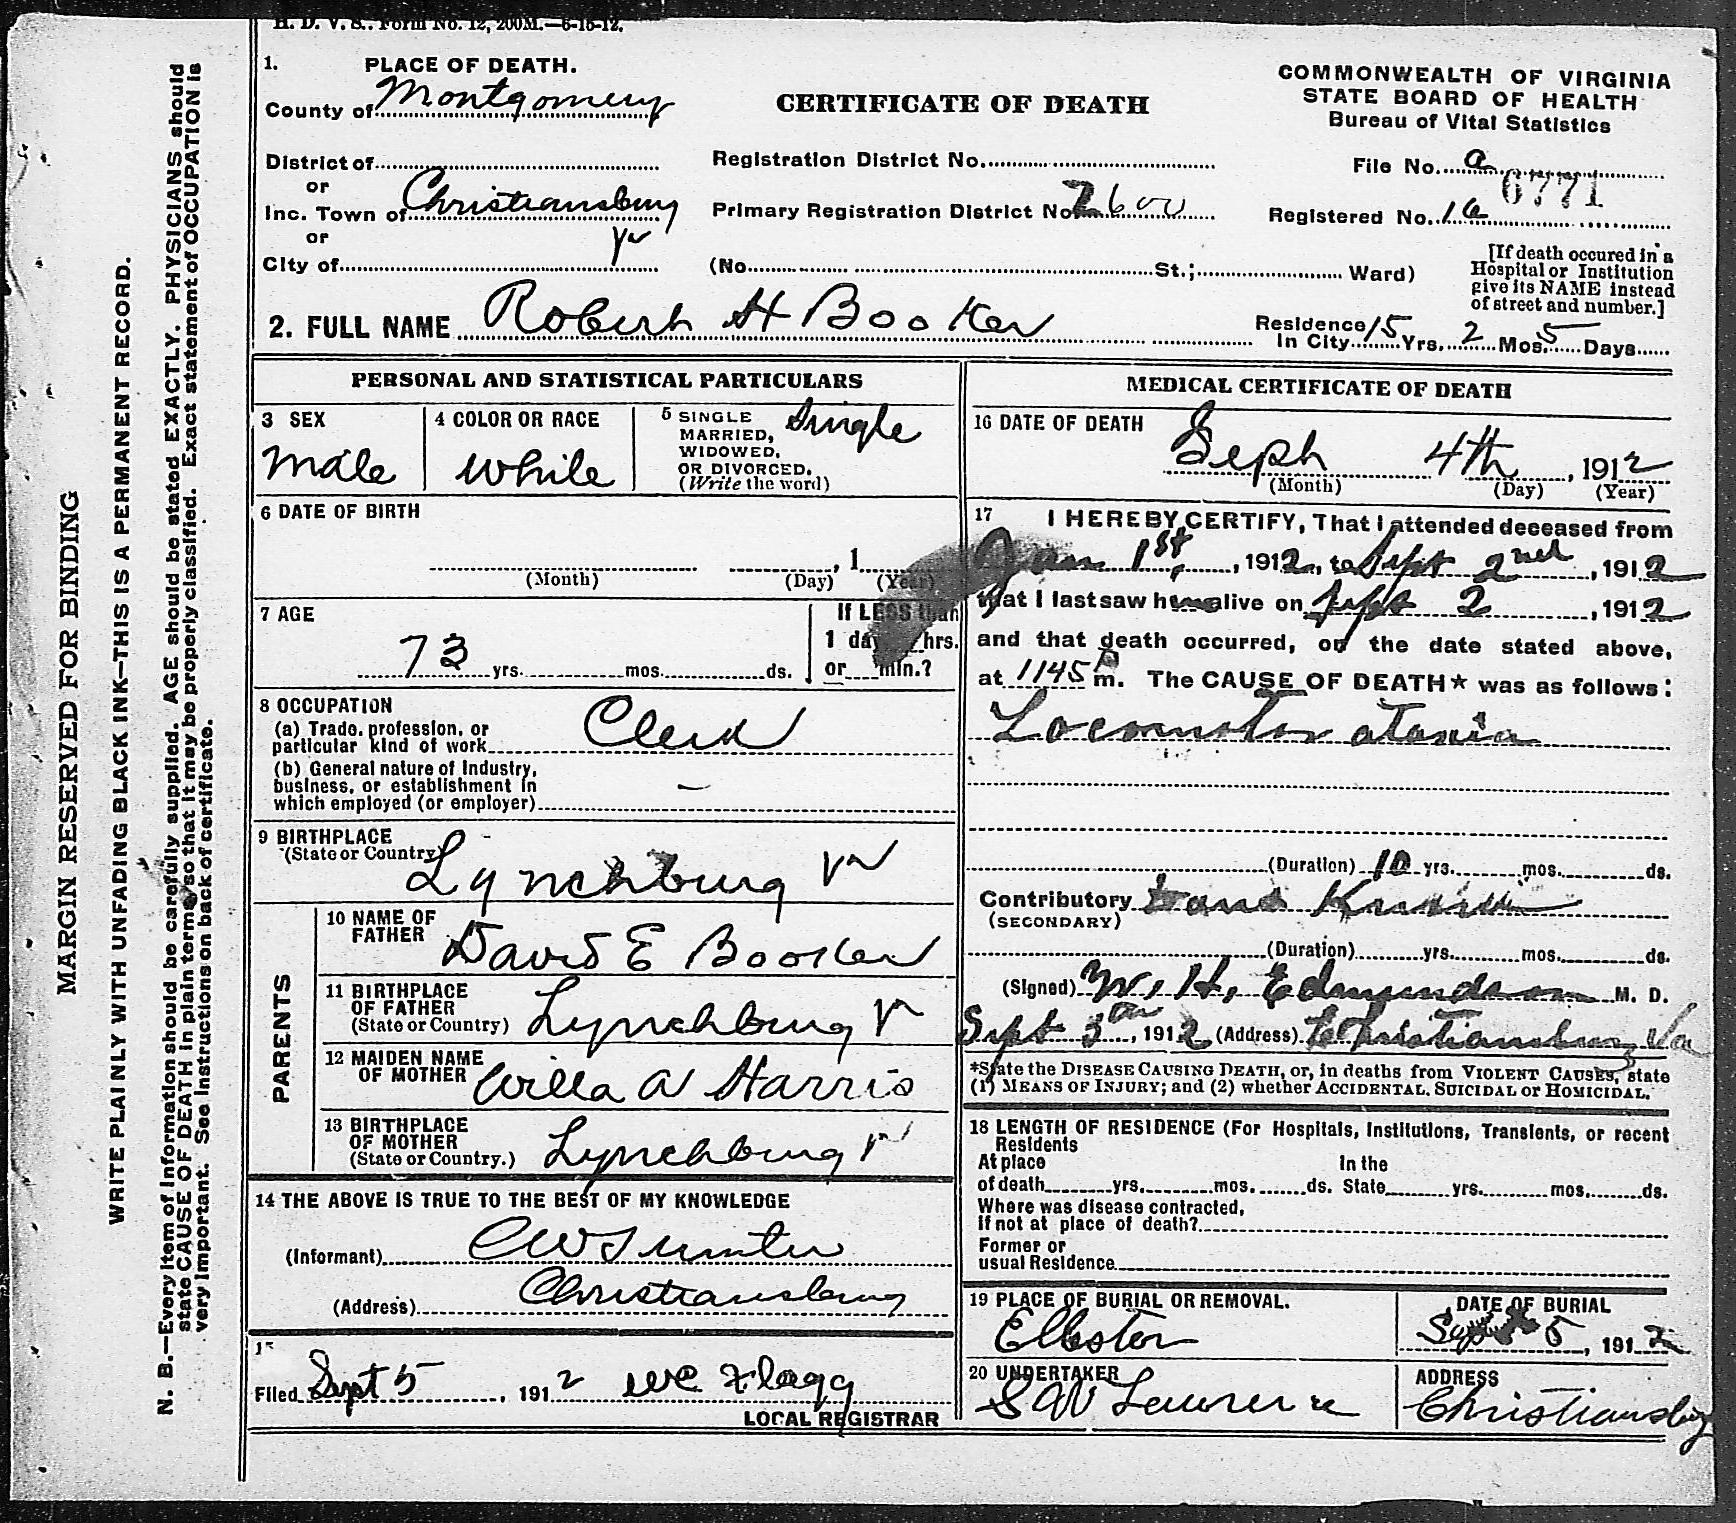 H. D. V. S., Form No. 12, 200M.—6-15-12.
1. PLACE OF DEATH.
County of Montgomery
CERTIFICATE OF DEATH
COMMONWEALTH OF VIRGINIA
STATE BOARD OF HEALTH
Bureau of Vital Statistics
District of
or
Inc. Town of Christiansburg
or
Va
City of
Registration District No.
Primary Registration District No. 2600
(No. St.; Ward)
File No. a 6771
Registered No. 16
[If death occured in a
Hospital or Institution
give its NAME instead
of street and number.]
2. FULL NAME Robert H Booker
Residence
In City 15 Yrs. 2 Mos. 5 Days
PERSONAL AND STATISTICAL PARTICULARS
3 SEX
Male
4 COLOR OR RACE
White
5 SINGLE
MARRIED,
WIDOWED,
OR DIVORCED.
(Write the word)
Single
6 DATE OF BIRTH
, 1
(Month) (Day) (Year)
7 AGE
73 yrs. mos. ds.
If LESS than
1 day hrs.
or min.?
8 OCCUPATION
(a) Trade, profession, or
particular kind of work Clerk
(b) General nature of Industry,
business, or establishment in
which employed (or employer) –
9 BIRTHPLACE
(State or Country)
Lynchburg Va
PARENTS
10 NAME OF
FATHER
David E Booker
11 BIRTHPLACE
OF FATHER
(State or Country) Lynchburg Va
12 MAIDEN NAME
OF MOTHER
Willa A Harris
13 BIRTHPLACE
OF MOTHER
(State or Country.) Lynchburg V
14 THE ABOVE IS TRUE TO THE BEST OF MY KNOWLEDGE
(Informant) CW Sumter
(Address) Christiansburg
15
Filed Sept 5, 1912 WC Flagg
LOCAL REGISTRAR
MEDICAL CERTIFICATE OF DEATH
16 DATE OF DEATH
Sept 4th, 1912
(Month) (Day) (Year)
17 I HEREBY CERTIFY, That I attended deceased from
Jan 1st, 1912, to Sept 2nd, 1912
that I last saw him alive on Sept 2, 1912
and that death occurred, on the date stated above,
at 1145 P m. The CAUSE OF DEATH* was as follows:
Locomotor ataxia
(Duration) 10 yrs. mos. ds.
Contributory
(SECONDARY)
(Duration) yrs. mos. ds.
(Signed) W. H. Edmundson M. D.
Sept 5th, 1912 (Address) Christiansburg Va
*State the DISEASE CAUSING DEATH, or, in deaths from VIOLENT CAUSES, state
(1) MEANS OF INJURY; and (2) whether ACCIDENTAL, SUICIDAL or HOMICIDAL.
18 LENGTH OF RESIDENCE (For Hospitals, Institutions, Transients, or recent
Residents
At place In the
of death yrs. mos. ds. State yrs. mos. ds.
Where was disease contracted,
If not at place of death?
Former or
usual Residence
19 PLACE OF BURIAL OR REMOVAL.
DATE OF BURIAL
Sept 5, 1912
20 UNDERTAKER
ADDRESS
Christiansburg
MARGIN RESERVED FOR BINDING
WRITE PLAINLY WITH UNFADING BLACK INK—THIS IS A PERMANENT RECORD.
N. B.—Every item of information should be carefully supplied. AGE should be stated EXACTLY. PHYSICIANS should
state CAUSE OF DEATH in plain terms, so that it may be properly classified. Exact statement of OCCUPATION is
very important. See instructions on back of certificate.